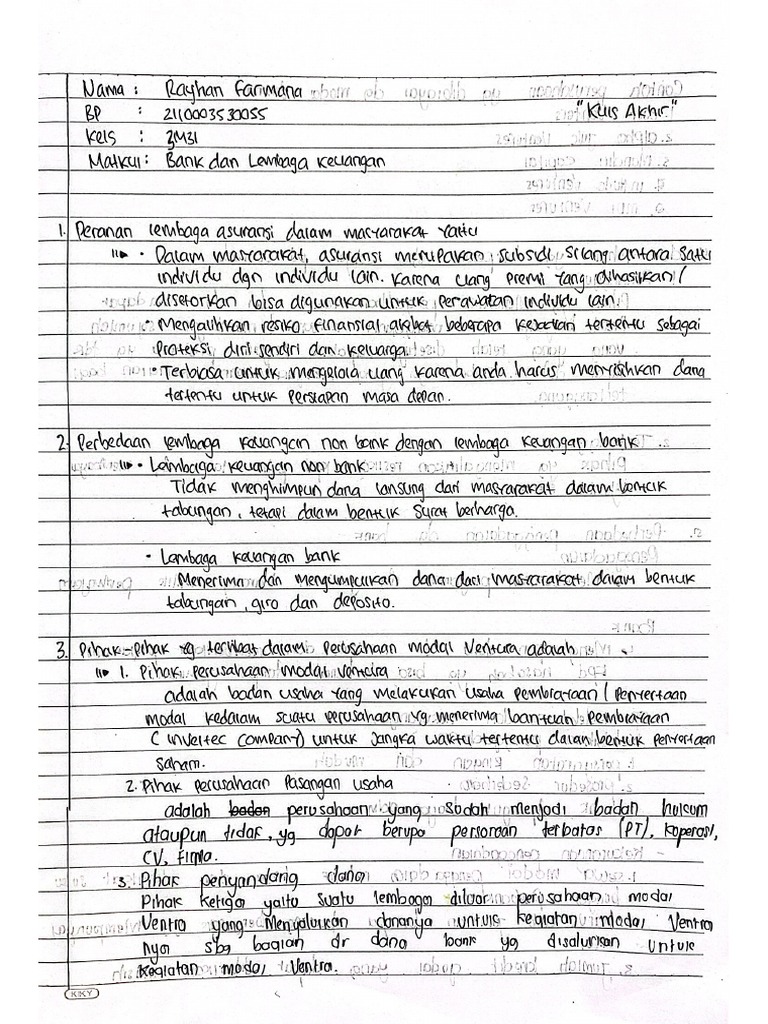 Nama : Rayhan Farimana
BP : 2110003530055 "Kuis Akhir"
Kels : 3M31
Matkul : Bank dan Lembaga Keuangan
1. Peranan lembaga asuransi dalam masyarakat Yaitu
• Dalam masyarakat, asuransi merupakan subsidi silang antara satu
individu dgn individu lain. Karena uang premi yang dihasilkan /
disetorkan bisa digunakan untuk perawatan individu lain.
• Mengalihkan resiko finansial akibat beberapa kejadian tertentu sebagai
proteksi diri sendiri dan keluarga
• Terbiasa untuk mengelola uang karena anda harus menyisihkan dana
tertentu untuk persiapan masa depan.
2. Perbedaan lembaga keuangan non bank dengan lembaga keuangan bank
• Lembaga keuangan non bank
Tidak menghimpun dana lansung dari masyarakat dalam bentuk
tabungan, tetapi dalam bentuk surat berharga.
• Lembaga keuangan bank
Menerima dan mengumpulkan dana dari masyarakat dalam bentuk
tabungan, giro dan deposito.
3. Pihak-Pihak yg terlibat dalam Perusahaan modal Ventura adalah
1. Pihak perusahaan modal ventura
adalah badan usaha yang melakukan usaha pembiayaan / penyertaan
modal kedalam suatu perusahaan yg menerima bantuan pembiayaan
(invertec company) untuk jangka waktu tertentu dalam bentuk penyertaan
saham.
2. Pihak perusahaan Pasangan usaha
adalah badan perusahaan yang sudah menjadi badan hukum
ataupun tidak, yg dapat berupa persoroan terbatas (PT), koperasi,
CV, firma.
3. Pihak penyandang dana
Pihak ketiga yaitu suatu lembaga diluar perusahaan modal
Ventra yang menyalurkan dananya untuk kegiatan modal ventra
nya sbg bagian dr dana bank yg disalurkan untuk
kegiatan modal ventra.
KIKY